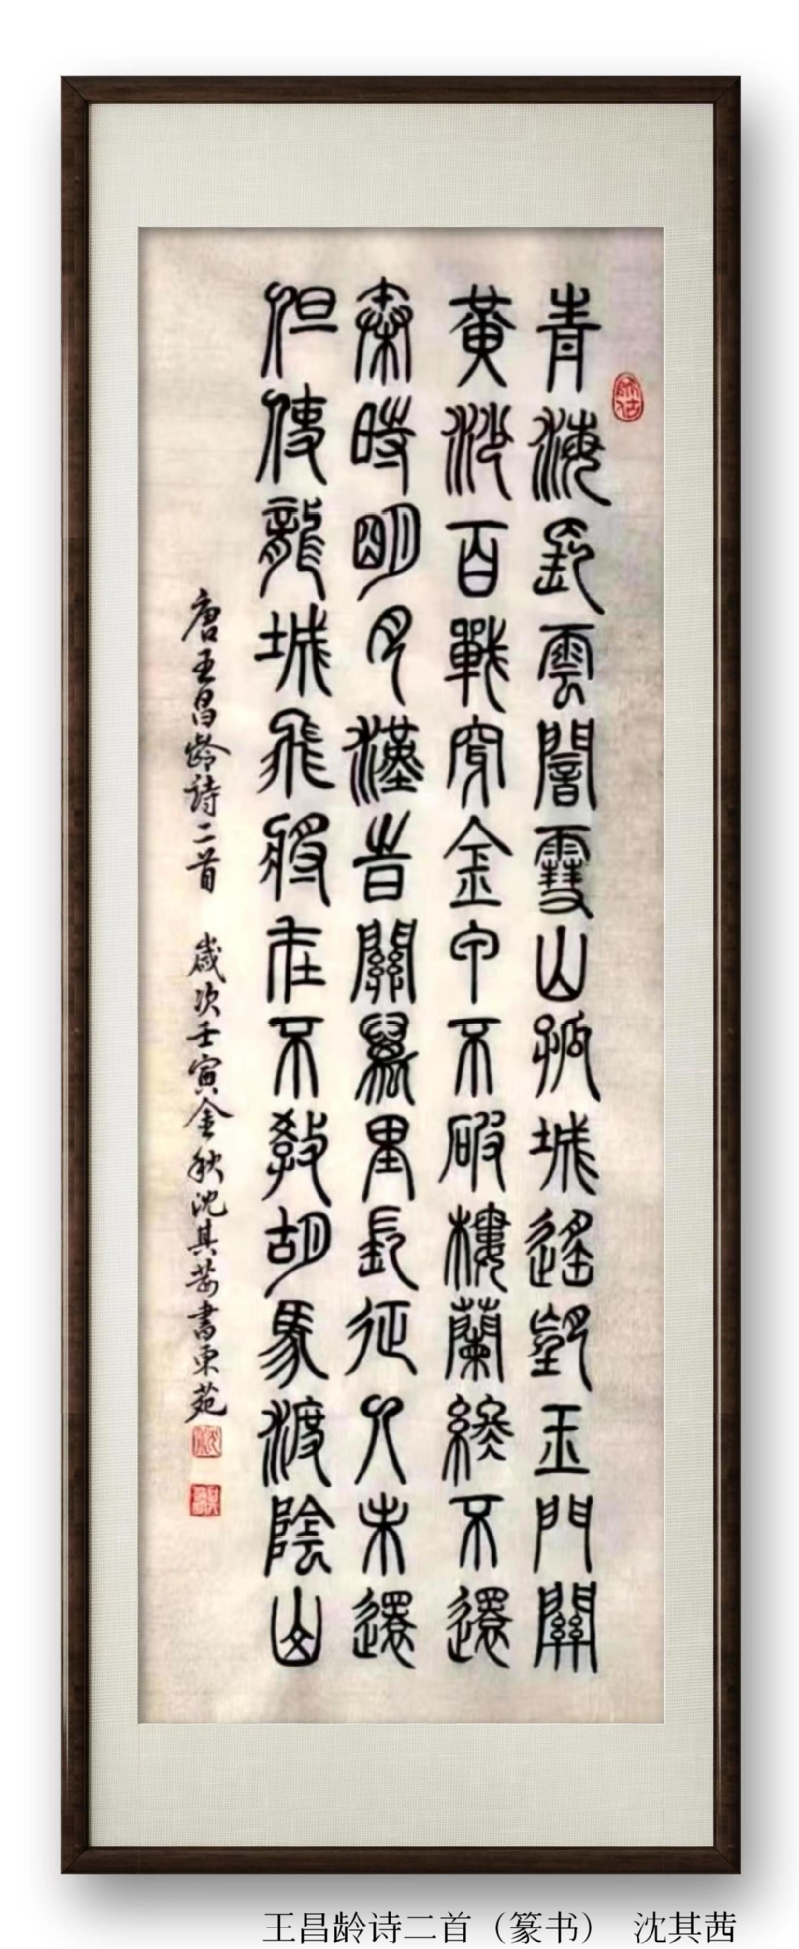 青海長雲闇雪山孤城遙望玉門關
黃沙百戰穿金甲不破樓蘭終不還
秦時明月漢旹關萬里長征人未還
但使龍城飛將在不教胡馬渡陰山
唐王昌齡詩二首 歲次壬寅金秋沈其茜書東苑
王昌龄诗二首（篆书） 沈其茜